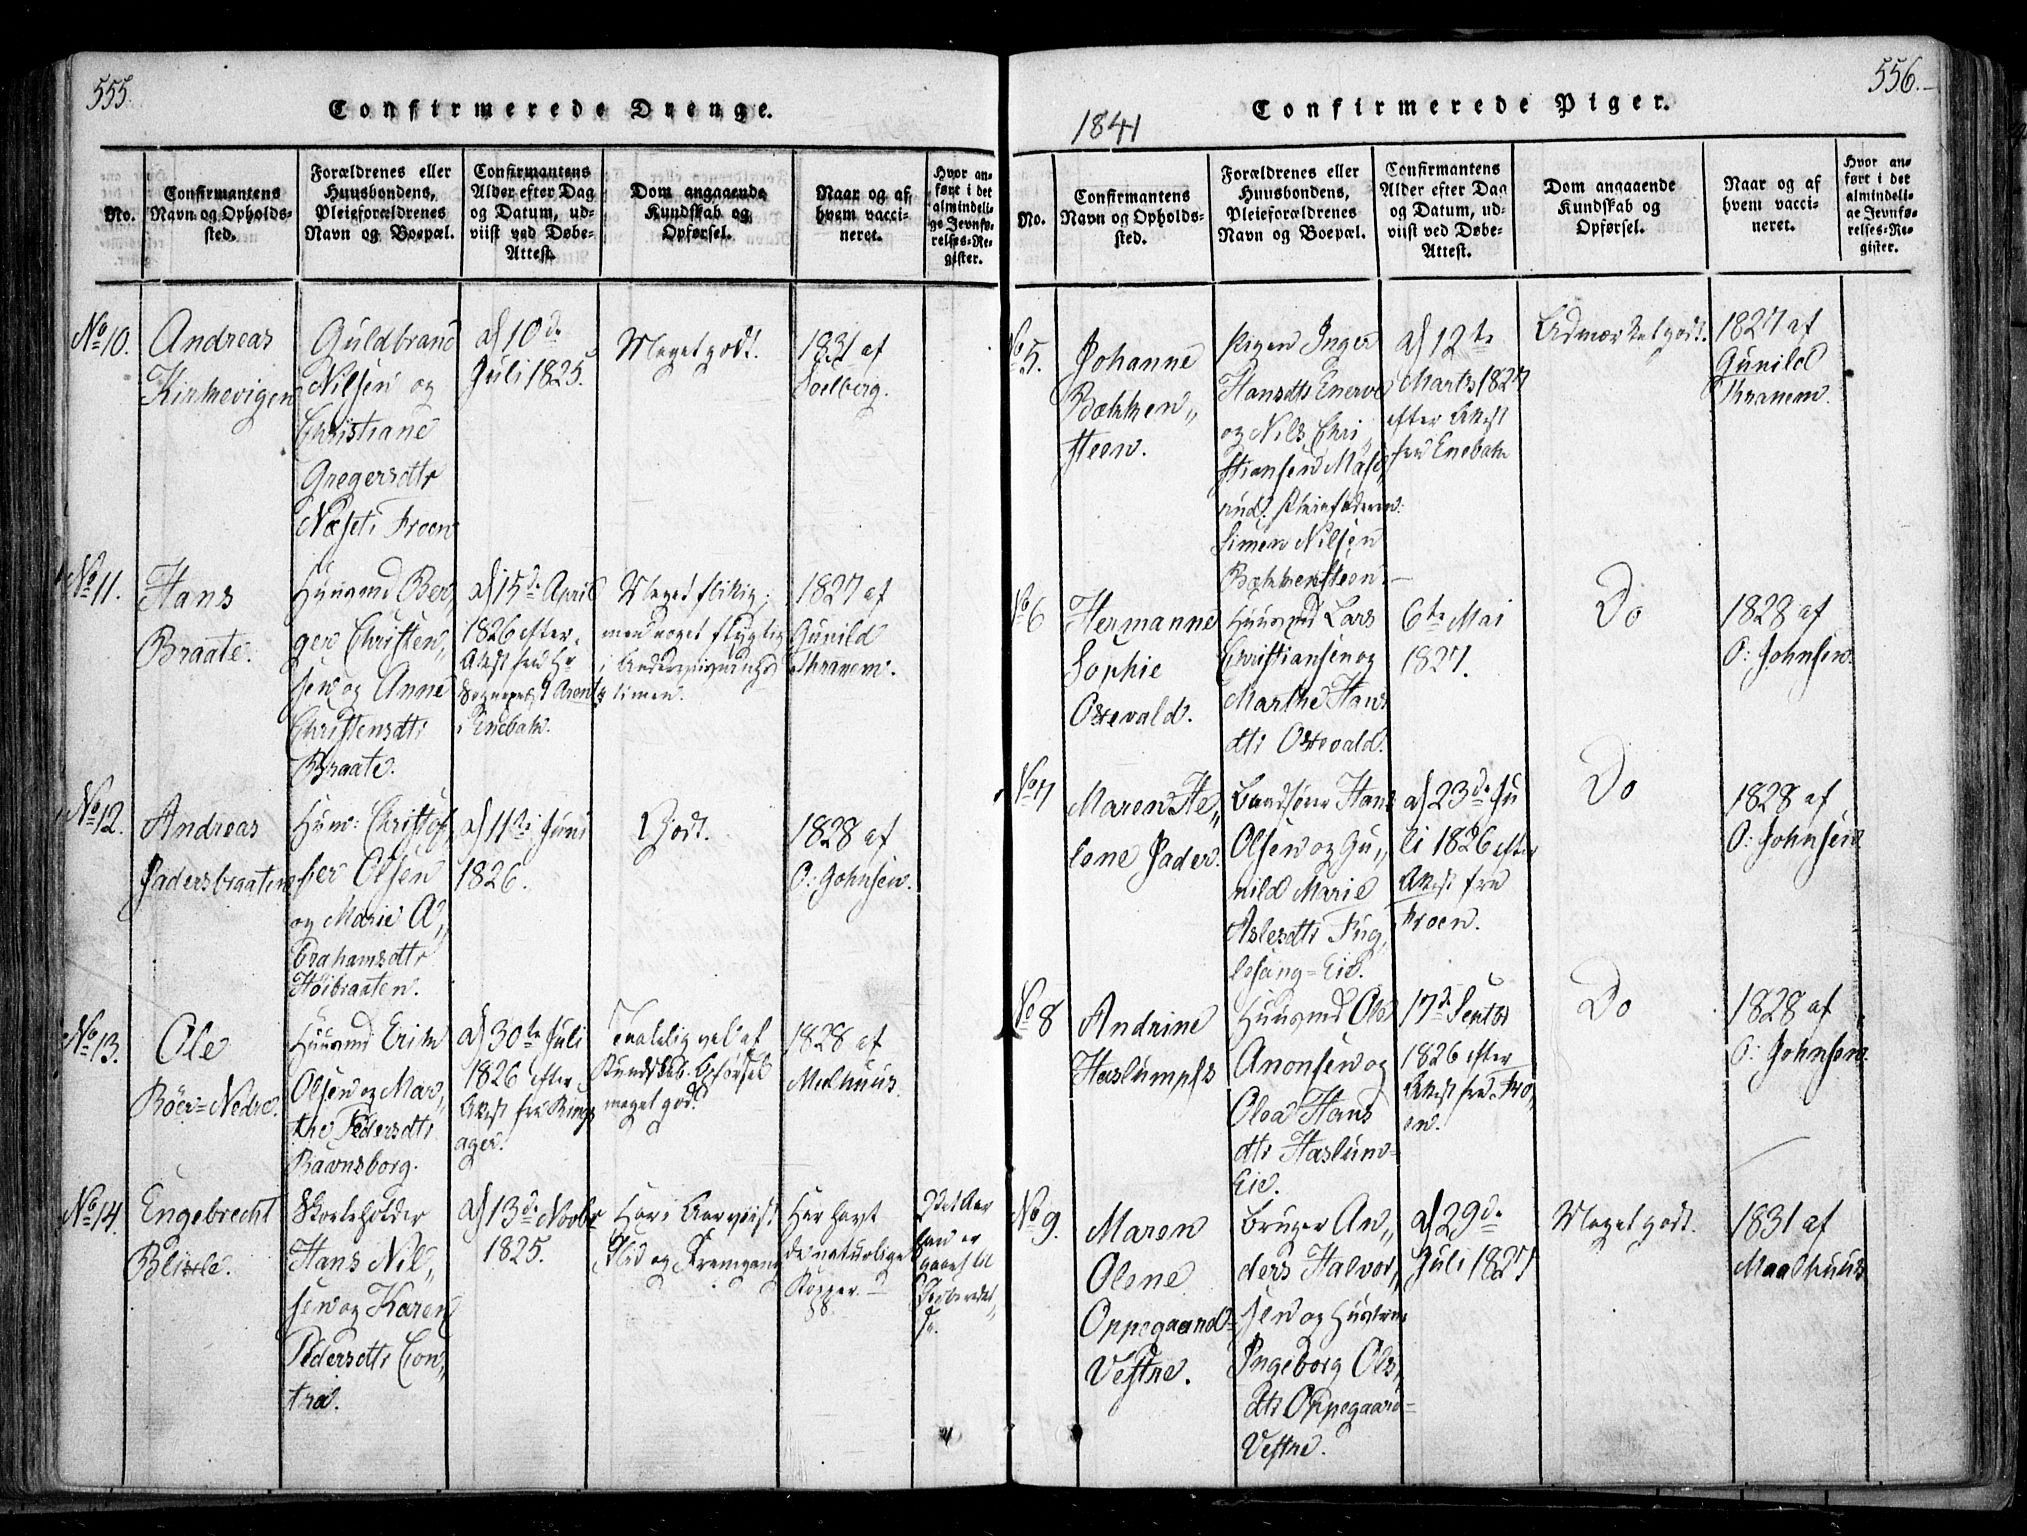 555.
Confirmerede Drenge.
No.
Confirmantens
Navn og Opholds-
sted.
Forældrenes eller
Huusbondens,
Pleieforældrenes
Navn og Boepæl.
Confirmantens
Alder efter Dag
og Datum, ud-
viist ved Døbe-
Attest.
Dom angaaende
Kundskab og
Opførsel.
Naar og af
hvem vacci-
neret.
Hvor an-
ført i det
almindeli-
ge Jevnfø-
relses-Re-
gister.
No 10.
Andreas
Kirkevigen
Guldbrand
Nilsen og
Christiane
Gregersdtr
Næset i Froen
af 10de
Juli 1825.
Meget godt.
1831 af
Soelberg.
No 11.
Hans
Braate.
Huusmd Ber„
ger Christen„
sen og Anne
Christensdtr
Braate.
af 15de April
1826 efter
Attest fra Hr
Sognepr. Arentz
i Enebak.
Meget flittig,
men noget flygtig
i Underviisnings
timen.
1827 af
Gunild
Thranem.
No 12.
Andreas
Sadersbraaten
Huusm: Christof„
fer Olsen
og Marie A„
brahamsdtr
Høibraaten.
af 11te Juni
1826.
Godt.
1828 af
O: Johnsen.
No 13.
Ole
Röer=Nedre.
Huusmd Erik
Olsen og Mar„
the Pedersdtr
Ravnsborg.
af 30te Juli
1826 efter
Attest fra Ring
ager.
Taalelig vel af
Kundskab. Opførsel
meget god.
1828 af
Melhuus.
No 14.
Engebrecht
Blixle.
Skoleholder
Hans Nil„
sen og Karen
Pedersdtr Con„
tra.
af 13de Novbr
1825.
Har i Aar viist
Flid og Fremgang
Har havt
de naturlige
Kopper.
1841
Confirmerede Piger.
556.
No.
Confirmantens
Navn og Opholds-
sted.
Forældrenes eller
Huusbondens,
Pleieforældrenes
Navn og Boepæl.
Confirmantens
Alder efter Dag
og Datum, ud-
viist ved Døbe-
Attest.
Dom angaaende
Kundskab og
Opførsel.
Naar og af
hvem vacci-
neret.
Hvor an-
ført i det
almindeli-
ge Jevnfø-
relses-Re-
gister.
No 5.
Johanne
Bækken„
steen.
Pigen Inger
Hansdtr Enerve
og Nils Chri„
stiansen
Pleiefaderen
Simen Nilsen
Bækkensteen.
af 12te
Marts 1827
efter Attest
fra Enebak
Udmærket godt.
1827 af
Gunild
Thranem
No 6
Hermanne
Sophie
Oxevald.
Huusmd Lars
Christiansen og
Marthe Hans
dtr Oxevald.
6te Mai
1827.
Do
1828 af
O: Johnsen
No 7
Maren He„
lene Sader.
Landsöner Hans
Olsen og Gu„
nild Marie
Aslesdtr Fug„
lesang=Eie.
af 23de Ju
li 1826 efter
Attest fra
Froen.
Do
1828 af
O: Johnsen
No 8
Andrine
Haslumpfs
Huusmd Ole
Anonsen og
Olea Hans
dtr Haslum=
Eie.
17de Septbr
1826 efter
Attest fra Fro„
en.
Do
1828 af
O: Johnsen
No 9.
Maren
Olene
Oppegaard
Vestre.
Bruger An„
ders Halvor„
sen og Hustrue
Ingeborg Ols„
dtr Oppegaard=
Vestre.
af 29de
Juli 1827
Meget godt.
1831 af
Maalhuus